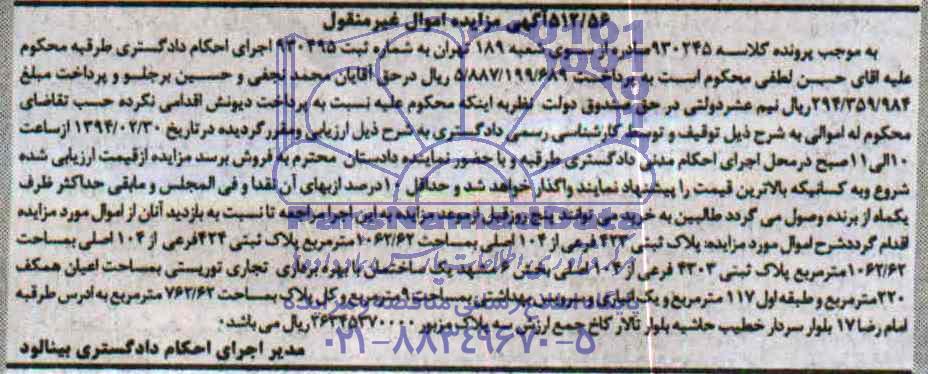 ۵۱۲/۵۶آگهی مزایده اموال غیرمنقول
به موجب پرونده کلاسه ۹۳۰۲۴۵صادره از سوی شعبه ۱۸۹ تهران به شماره ثبت ۹۳۰۴۹۵ اجرای احکام دادگستری طرقبه محکوم
علیه اقای حسن لطفی محکوم است به پرداخت ۵/۸۸۷/۱۹۹/۶۸۹ ریال درحق آقایان محمد نجفی و حسین برجلو و پرداخت مبلغ
۲۹۴/۳۵۹/۹۸۴ریال نیم عشردولتی در حق صندوق دولت نظربه اینکه محکوم علیه نسبت به پرداخت دیونش اقدامی نکرده حسب تقاضای
محکوم له اموالی به شرح ذیل توقیف و توسط کارشناسی رسمی دادگستری به شرح ذیل ارزیابی ومقرر گردیده درتاریخ ۱۳۹۴/۰۲/۳۰ ازساعت
۱۰الی۱۱صبح درمحل اجرای احکام مدنی دادگستری طرقبه و با حضور نماینده دادستان محترم به فروش برسد مزایده ازقیمت ارزیابی شده
شروع وبه کسانیکه بالاترین قیمت را پیشنهاد نمایند واگذار خواهد شد و حداقل ۱۰درصد ازبهای آن نقدا و فی المجلس و مابقی حداکثر ظرف
یکماه از برنده وصول می گردد طالبین به خرید می توانند پنج روز قبل ازموعد مزایده به این اجرا مراجعه تا نسبت به بازدید آنان از اموال مورد مزایده
اقدام گرددشرح اموال مورد مزایده: پلاک ثبتی ۴۲۳ فرعی از ۱۰۴ اصلی بمساحت ۱۰۶۲/۶۲مترمربع پلاک ثبتی ۴۲۴فرعی از ۱۰۴ اصلی بمساحت
۱۰۶۲/۶۲مترمربع پلاک ثبتی ۴۳۰۳ فرعی از ۱۰۴ اصلی بخش ۶ مشهد یک ساختمان با بهره برداری تجاری توریستی بمساحت اعیان همکف
۳۲۰مترمربع و طبقه اول ۱۱۷ مترمربع و یک انباری و سرویس بهداشتی بمساحت ۹ مترمربع و کل پلاک بمساحت ۷۶۲/۶۲ مترمربع به ادرس طرقبه
امام رضا ۱۷ بلوار سردار خطیب حاشیه بلوار تالار کاخ جمع ارزش سه پلاک مزبور ۲۶۳۴۵۳۷۰۰۰۰ ریال می باشد.
مدیر اجرای احکام دادگستری بینالود
ParsNamadData
پایگاه اطلاع رسانی مناقصه و مزایده
۰۲۱-۸۸۳۴۹۶۷۰-۵